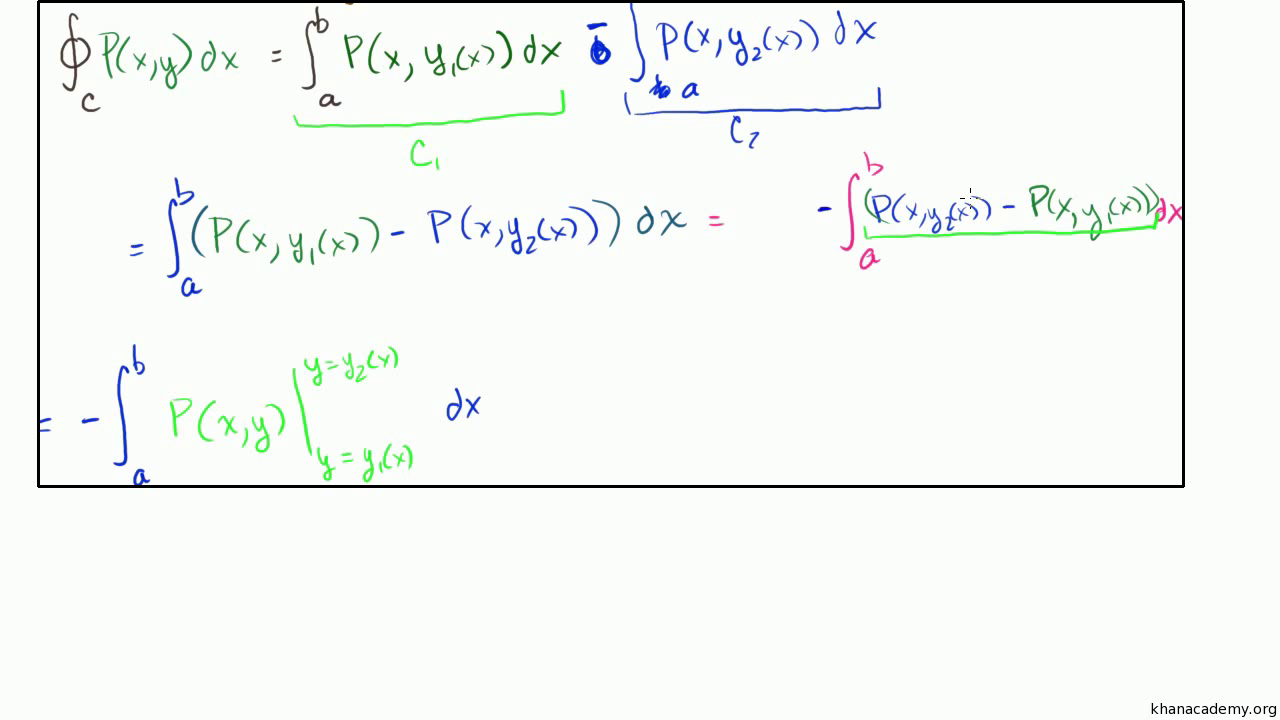 ∮_C P(x,y)dx = ∫_a^b P(x, y₁(x)) dx - ∫_a P(x,y₂(x)) dx
C₁ C₂
= ∫_a^b (P(x, y₁(x)) - P(x,y₂(x))) dx = - ∫_a^b (P(x,y₂(x)) - P(x,y₁(x))) dx
= - ∫_a^b P(x,y) |_{y = y₁(x)}^{y=y₂(x)} dx
khanacademy.org